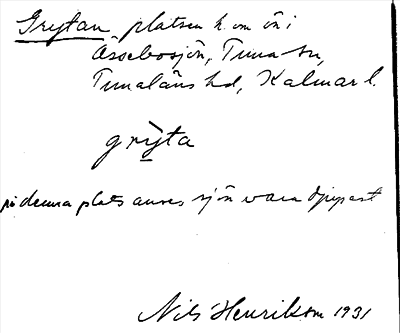 Grytan platsen k. om ön i
Åssebosjön, Tuna sn,
Tunaläns hd, Kalmar l.
grỳta
på denna plats anses sjön vara djupast
Nils Henrikson 1931